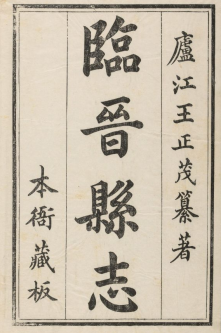 廬江王正茂纂著
臨晉縣志
本衙藏板